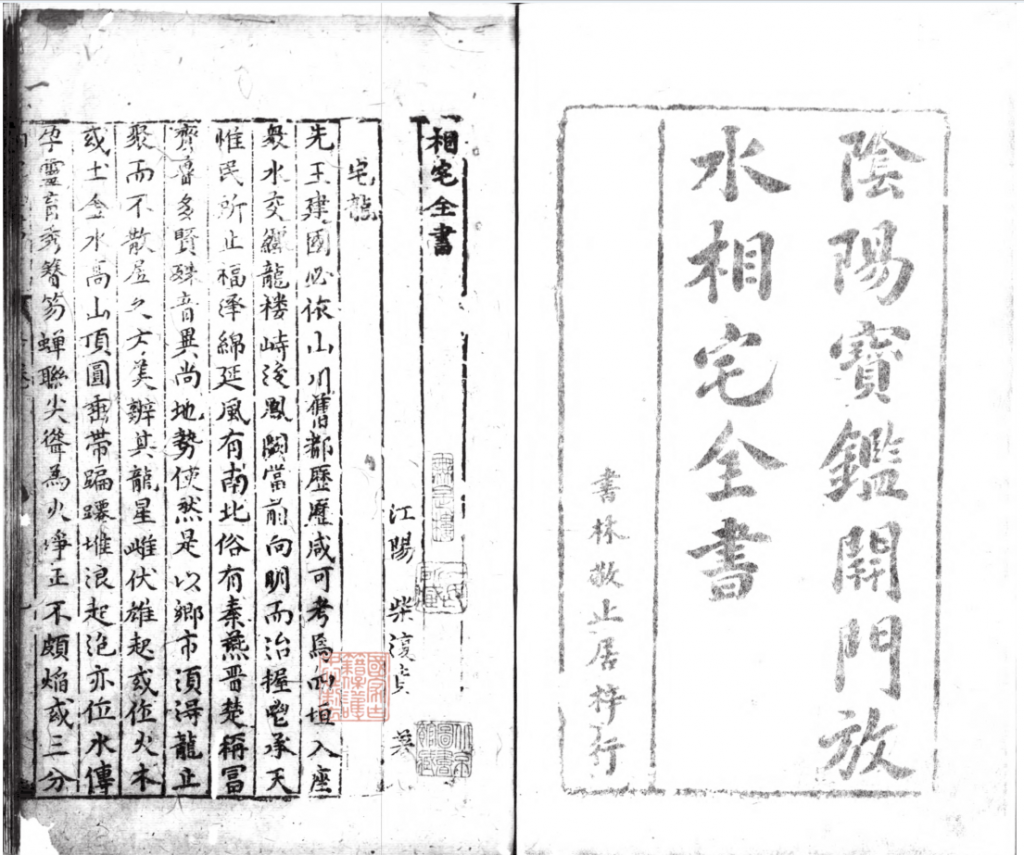 陰陽寶鑑開門放
水相宅全書
書林敬止居梓行
相宅全書
江陽 柴復貞
宅龍
先王建國必依山川舊都歷歷咸可考為四垣入座
衆水交纏龍樓峙後鳳闕當前向明而治握乾承天
惟民所止福澤綿延風有南北俗有秦燕晉楚稱冨
齊魯多賢殊音異尚地勢使然是以鄉市湏淂龍止
聚而不散居之方美辦其龍星雌伏雄起或位火木
或土金水高山頂圓垂帶蹁躚堆浪起泡亦位水傳
孕靈育秀簪笏蟬聯尖聳為火竫正不頗焰或三分